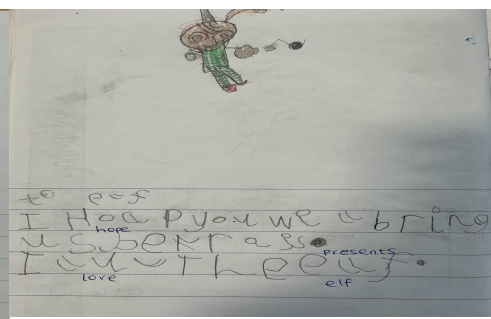 to e=f
I Hoa pyou we ll bring
hope
us
presents
I luv The eluf.
love
elf